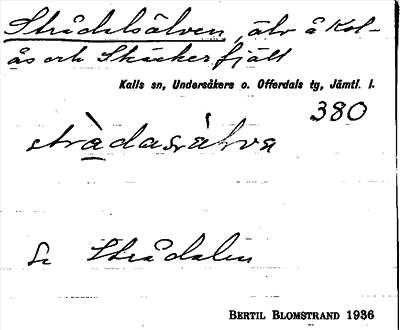 Strådalsälven, älv å Kol-
ås och Skäckerfjäll
Kalls sn, Undersåkers o. Offerdals tg, Jämtl. l.
380
stràdasälva
Se Strådalen
BERTIL BLOMSTRAND 1936